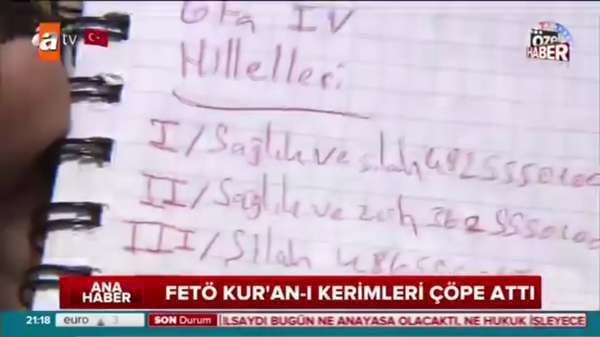 Gta IV
atv
ÖZEL
HABER
Hilleleri
I/Sağlık ve silah 4825550100
II/Sağlık ve zırh 3625550100
III/Silah 486555
ANA
HABER
FETÖ KUR'AN-I KERİMLERİ ÇÖPE ATTI
21:18 euro 3 SON Durum ILSAYDI BUGÜN NE ANAYASA OLACAKTI, NE HUKUK İŞLEYECE